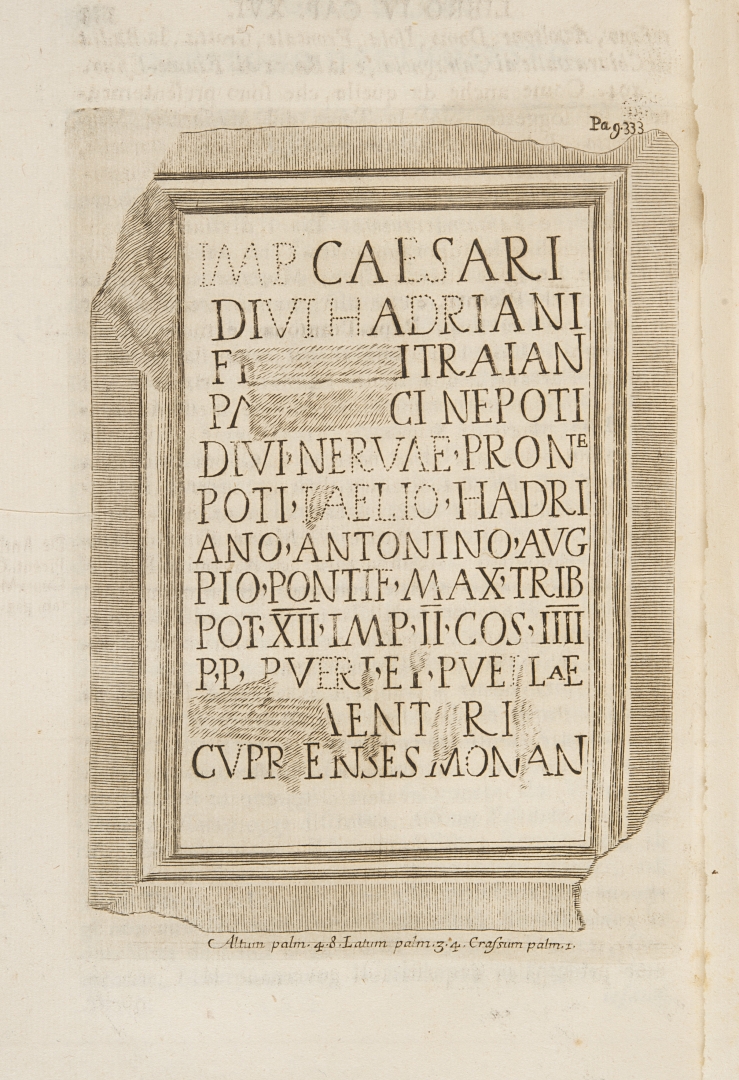 Pag. 333
IMP CAESARI
DIVI HADRIANI
ITRAIAN
CI NEPOTI
DIVI, NERVAE, PRONE
POTI, T, AELIO, HADRI
ANO, ANTONINO, AVG
PIO, PONTIF, MAX, TRIB
POT, XII, IMP, II, COS, IIII
P, P, PVERI, ET, PVELLAE
MENT RI
CVPRENSES MONAN
Altum palm. 4. 8. Latum palm. 3. 4. Crassum palm. 1.